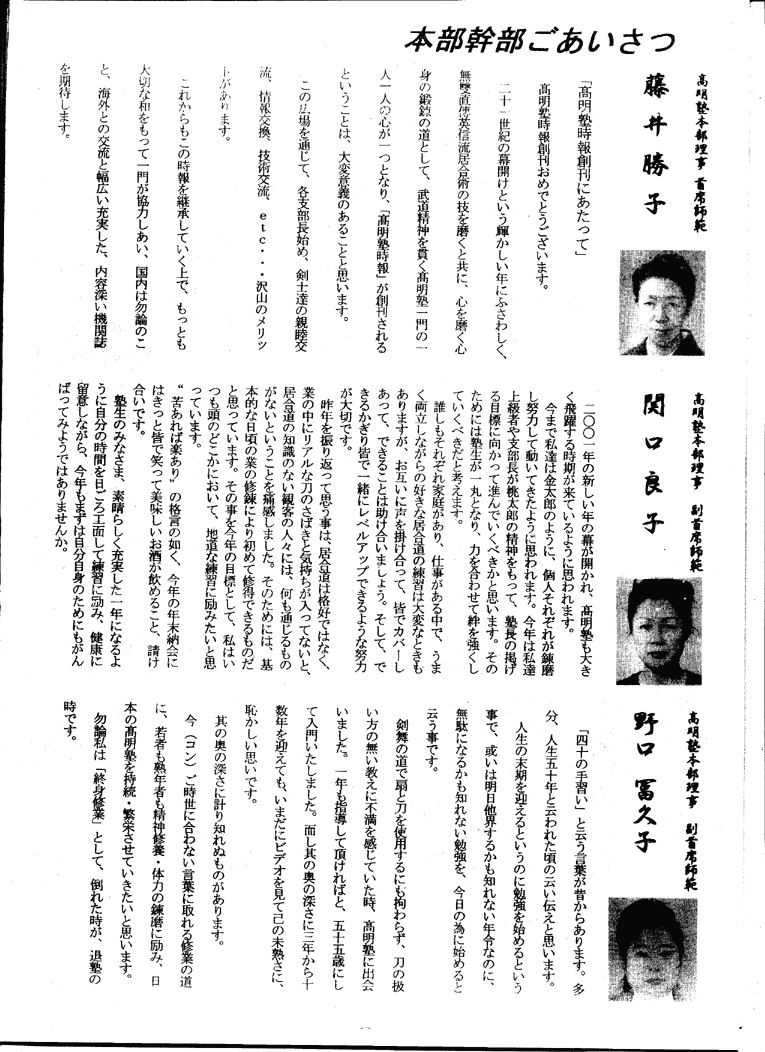 本部幹部ごあいさつ
高明塾本部理事 首席師範
藤井勝子
「髙明塾時報創刊にあたって」
髙明塾時報創刊おめでとうございます。
二十一世紀の幕開けという輝かしい年にふさわしく、
無雙直傳英信流居合術の技を磨くと共に、心を磨く心
身の鍛錬の道として、武道精神を貫く髙明塾一門の一
人一人の心が一つとなり、「髙明塾時報」が創刊される
ということは、大変意義のあることと思います。
この広場を通じて、各支部長始め、剣士達の親睦交
流、情報交換、技術交流、etc・・・沢山のメリッ
トがあります。
これからもこの時報を継承していく上で、もっとも
大切な和をもって一門が協力しあい、国内は勿論のこ
と、海外との交流と幅広い充実した、内容深い機関誌
を期待します。
高明塾本部理事 副首席師範
関口良子
二〇〇一年の新しい年の幕が開かれ、髙明塾も大き
く飛躍する時期が来ているように思われます。
今まで私達は金太郎のように、個人それぞれが錬磨
し努力して動いてきたように思われます。今年は私達
上級者や支部長が桃太郎の精神をもって、塾長の掲げ
る目標に向かって進んでいくべきかと思います。その
ためには塾生が一丸となり、力を合わせて絆を強くし
ていくべきだと考えます。
誰しもそれぞれ家庭があり、仕事がある中で、うま
く両立しながらの好きな居合道の練習は大変なときも
ありますが、お互いに声を掛け合って、皆でカバーし
あって、できることは助け合いましょう。そして、で
きるかぎり皆で一緒にレベルアップできるような努力
が大切です。
昨年を振り返って思う事は、居合道は格好ではなく、
業の中にリアルな刀のさばきと気持ちが入ってないと、
居合道の知識のない観客の人々には、何も通じるもの
がないということを痛感しました。そのためには、基
本的な日頃の業の修錬により初めて修得できるものだ
と思っています。その事を今年の目標として、私はい
つも頭のどこかにおいて、地道な練習に励みたいと思
っています。
“苦あれば楽あり”の格言の如く、今年の年末納会に
はきっと皆で笑って美味しいお酒が飲めること、請け
合いです。
塾生のみなさま、素晴らしく充実した一年になるよ
うに自分の時間を日ごろ工面して練習に励み、健康に
留意しながら、今年もまずは自分自身のためにもがん
ばってみようではありませんか。
高明塾本部理事 副首席師範
野口冨久子
「四十の手習い」と云う言葉が昔からあります。多
分、人生五十年と云われた頃の云い伝えと思います。
人生の末期を迎えるというのに勉強を始めるという
事で、或いは明日他界するかも知れない年令なのに、
無駄になるかも知れない勉強を、今日の為に始めると
云う事です。
剣舞の道で扇と刀を使用するにも拘わらず、刀の扱
い方の無い教えに不満を感じていた時、髙明塾に出会
いました。一年も指導して頂ければと、五十五歳にし
て入門いたしました。而し其の奥の深さに三年から十
数年を迎えても、いまだにビデオを見て己の未熟さに、
恥かしい思いです。
其の奥の深さに計り知れぬものがあります。
今（コン）ご時世に合わない言葉に取れる修業の道
に、若者も熟年者も精神修養・体力の錬磨に励み、日
本の髙明塾を持続・繁栄させていきたいと思います。
勿論私は「終身修業」として、倒れた時が、退塾の
時です。